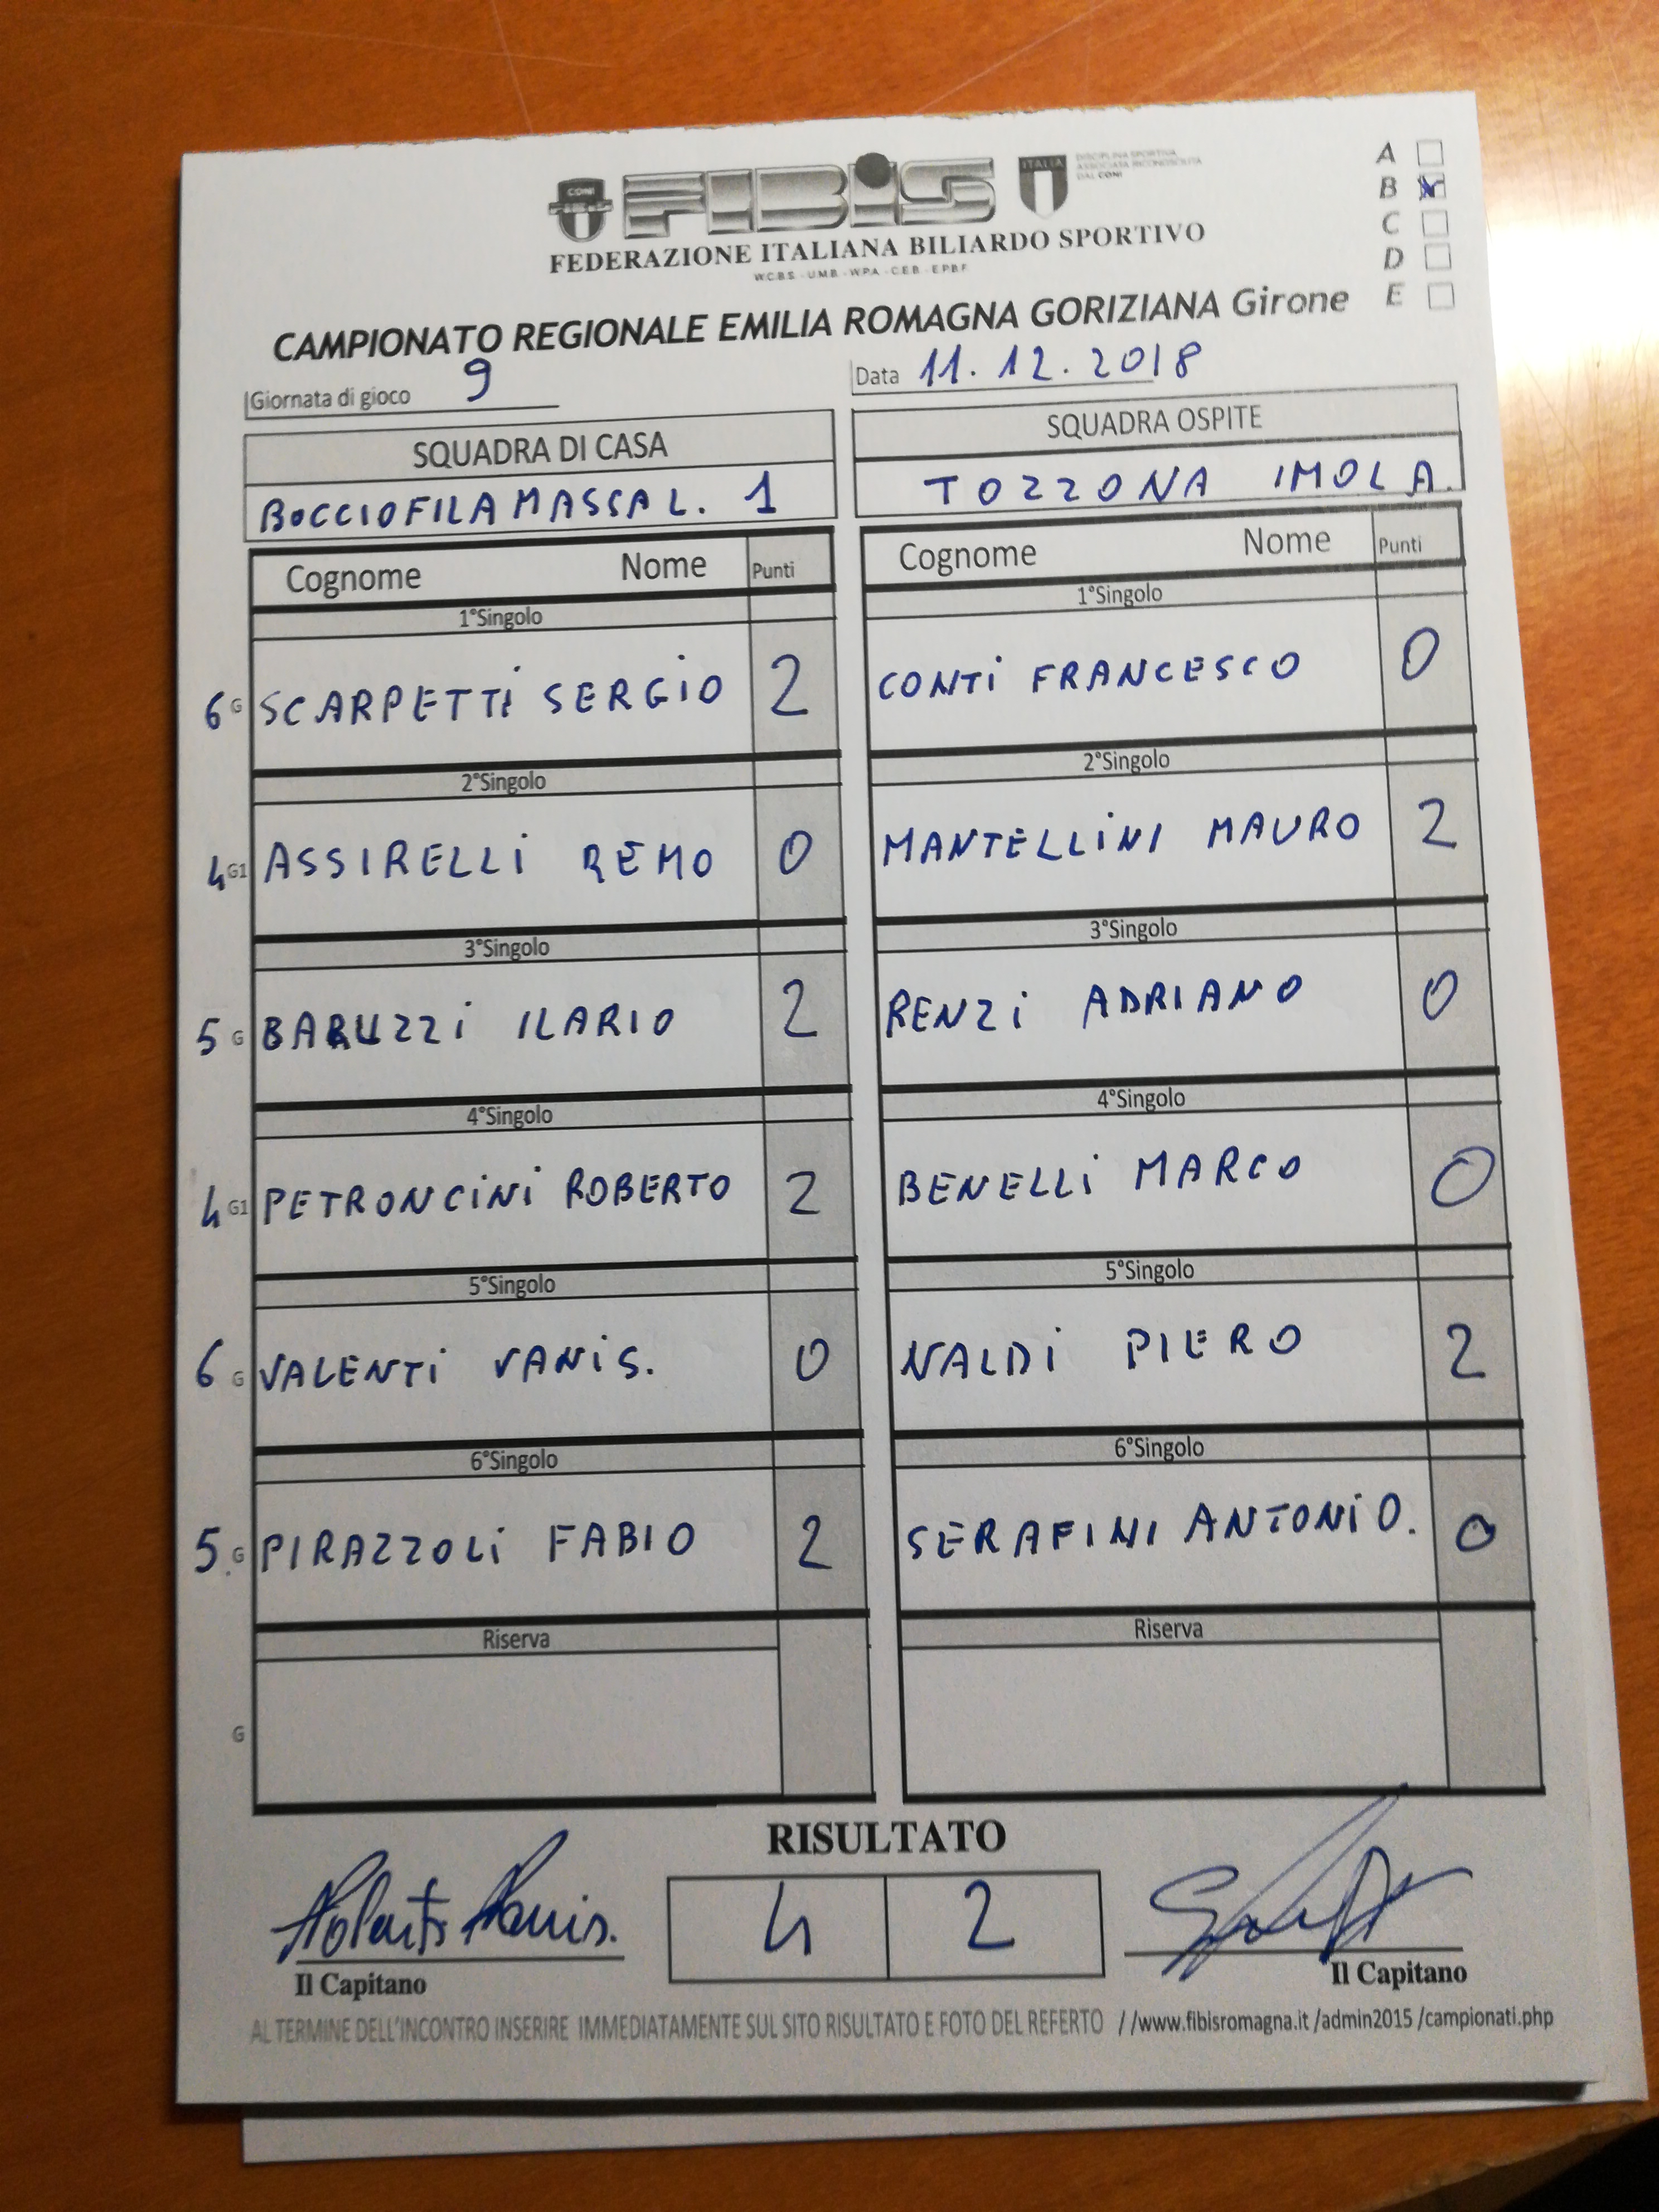 CONI FIBIS ITALIA DISCIPLINA SPORTIVA
ASSOCIATA RICONOSCIUTA
DAL CONI
A
B
C
D
E
FEDERAZIONE ITALIANA BILIARDO SPORTIVO
W.C.B.S. - U.M.B. - W.P.A. - C.E.B. - E.P.B.F.
CAMPIONATO REGIONALE EMILIA ROMAGNA GORIZIANA Girone
Giornata di gioco 9 Data 11.12.2018
SQUADRA DI CASA SQUADRA OSPITE
BOCCIOFILA MASSA L. 1 TOZZONA IMOLA.
Cognome Nome Punti Cognome Nome Punti
1°Singolo 1°Singolo
6 G SCARPETTI SERGIO 2 CONTI FRANCESCO 0
2°Singolo 2°Singolo
4 G1 ASSIRELLI REMO 0 MANTELLINI MAURO 2
3°Singolo 3°Singolo
5 G BARUZZI ILARIO 2 RENZI ADRIANO 0
4°Singolo 4°Singolo
4 G1 PETRONCINI ROBERTO 2 BENELLI MARCO 0
5°Singolo 5°Singolo
6 G VALENTI VANIS. 0 NALDI PIERO 2
6°Singolo 6°Singolo
5. G PIRAZZOLI FABIO 2 SERAFINI ANTONIO. 0
Riserva Riserva
G
RISULTATO
4 2
Il Capitano Il Capitano
AL TERMINE DELL'INCONTRO INSERIRE IMMEDIATAMENTE SUL SITO RISULTATO E FOTO DEL REFERTO //www.fibisromagna.it /admin2015 /campionati.php